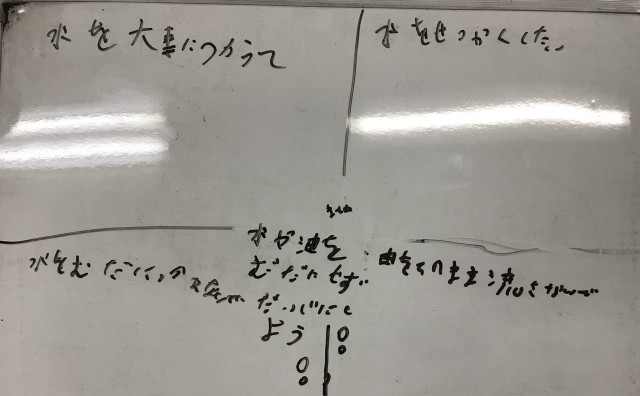 水を大事につかうて
水をせつかくした
水をむだにつか
水が油を
むだにせず
だいじにし
よう!!
油をそのまま流さないで